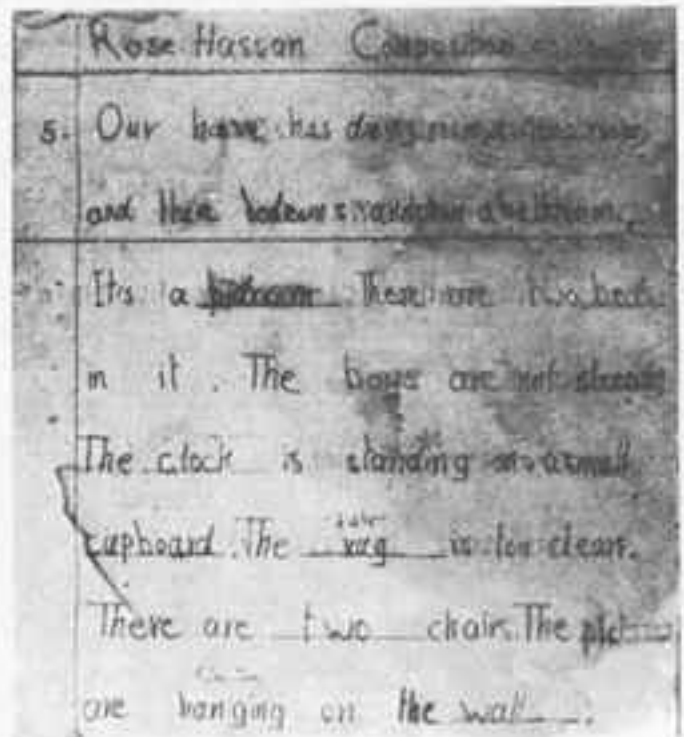 Rose Hassan Composition
5. Our house has
and three bedrooms and
It's a There are two beds
in it. The boys are not
The clock is standing on a small
cupboard. The rug is too clean.
There are two chair. The
are hanging on the wall.